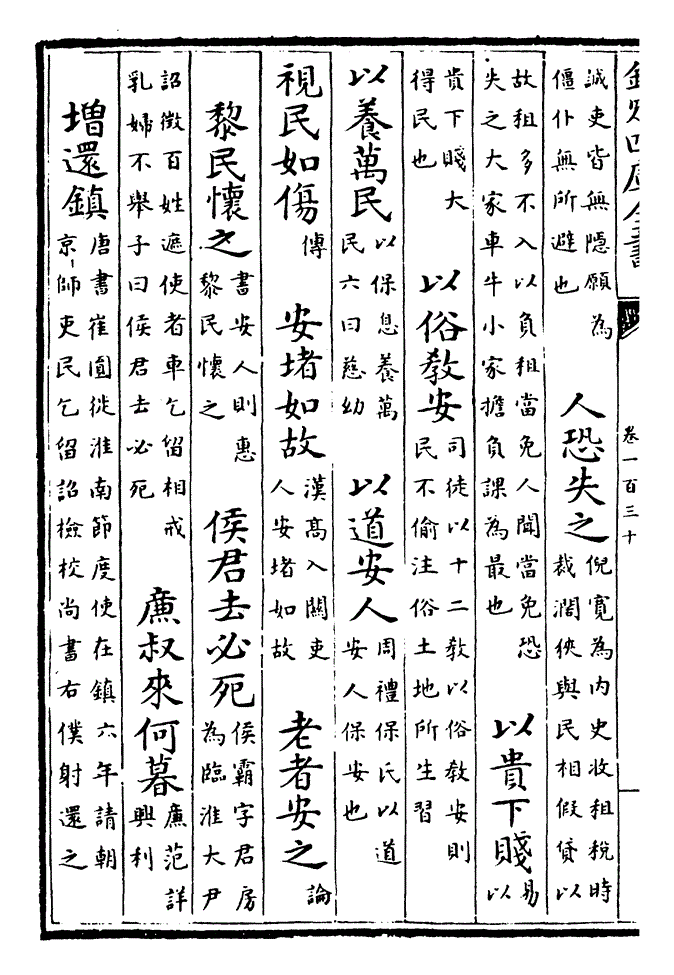 欽定四庫全書 卷一百三十
誠吏皆無隱願為僵仆無所避也 人恐失之 倪寛為内史收租税時裁濶狹與民相假貸以
故租多不入以負租當免人聞當免恐失之大家車牛小家擔負課為最也 以貴下賤 易以
貴下賤大得民也 以俗教安 司徒以十二教以俗教安則民不偷注俗土地所生習
以養萬民 以保息養萬民六曰慈幼 以道安人 周禮保氏以道安人保安也
視民如傷 傳 安堵如故 漢髙入關吏人安堵如故 老者安之 論
黎民懷之 書安人則惠黎民懷之 侯君去必死 侯霸字君房為臨淮大尹
詔徴百姓遮使者車乞留相戒乳婦不舉子曰侯君去必死 廉叔來何暮 廉范詳興利
増還鎮 唐書崔圓徙淮南節度使在鎮六年請朝京師吏民乞留詔檢校尚書右僕射還之